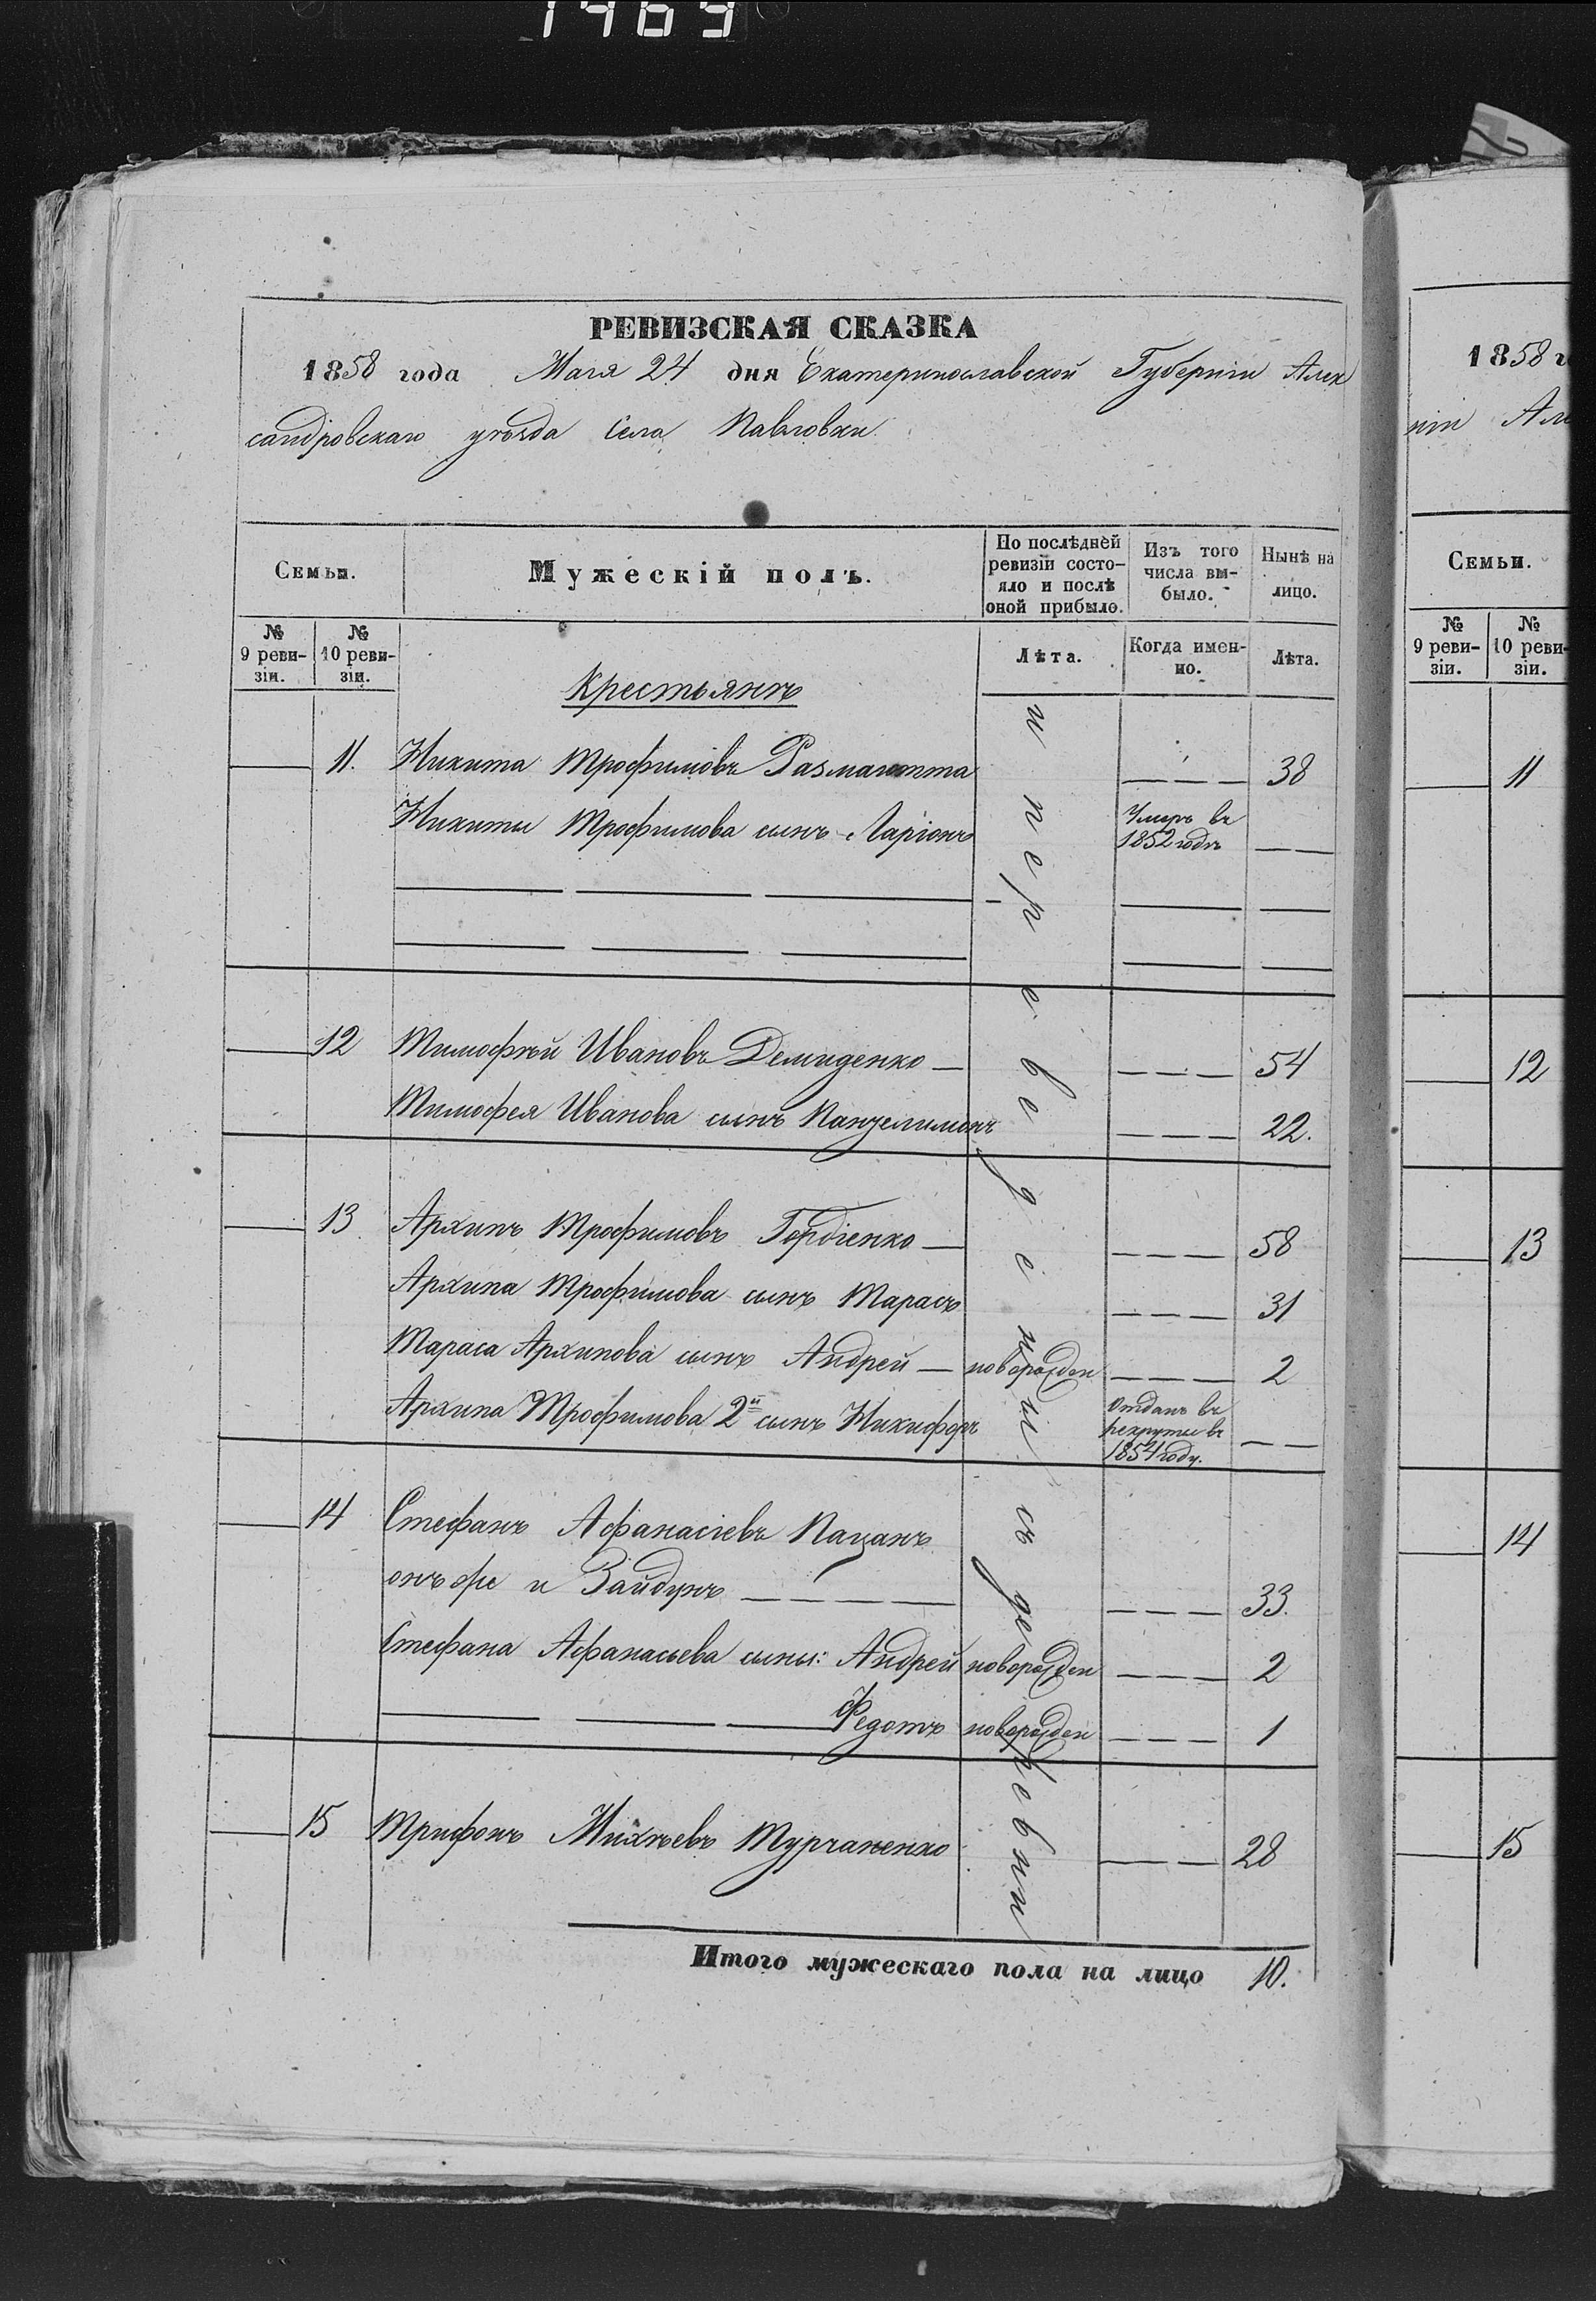 1469
РЕВИЗСКАЯ СКАЗКА
1858 года Мая 24 дня Екатеринославской Губернiи Алек
сандровскаго уѣзда Села Павловки.
Семьи.
Мужескiй полъ.
По послѣдней ревизiи состо-
яло и послѣ
оной прибыло.
Изъ того
числа вы-
было.
Нынѣ на
лицо.
№
9 реви-
зiи.
№
10 реви-
зiи.
Лѣта.
Когда имен-
но.
Лѣта.
Крестьянъ
11. Никита Трофимовъ 38
Никиты Трофимова сынъ Ларiонъ Умеръ въ
1852 годѣ
12 Тимофѣй Ивановъ Демиденко 54
Тимофея Иванова сынъ Пантелимонъ 22.
13 Архипъ Трофимовъ Гордiенко 58
Архипа Трофимова сынъ Тарасъ 31
Тараса Архипова сынъ Андрей новорожден 2
Архипа Трофимова 2й сынъ Никифоръ Отданъ въ
рекруты въ
1854 году.
14 Стефанъ Афанасiевъ Пацанъ
онъ же и Зайдунъ 33.
Стефана Афанасьева сыны: Андрей новорожден 2
Федотъ новорожден 1
15 Трифонъ Михѣевъ Турчаненко 28
и переведены съ деревни
Итого мужескаго пола на лицо 10.
1858 г
нiи Але
Семьи.
№
9 реви-
зiи.
№
10 реви-
зiи.
11
12
13
14
15